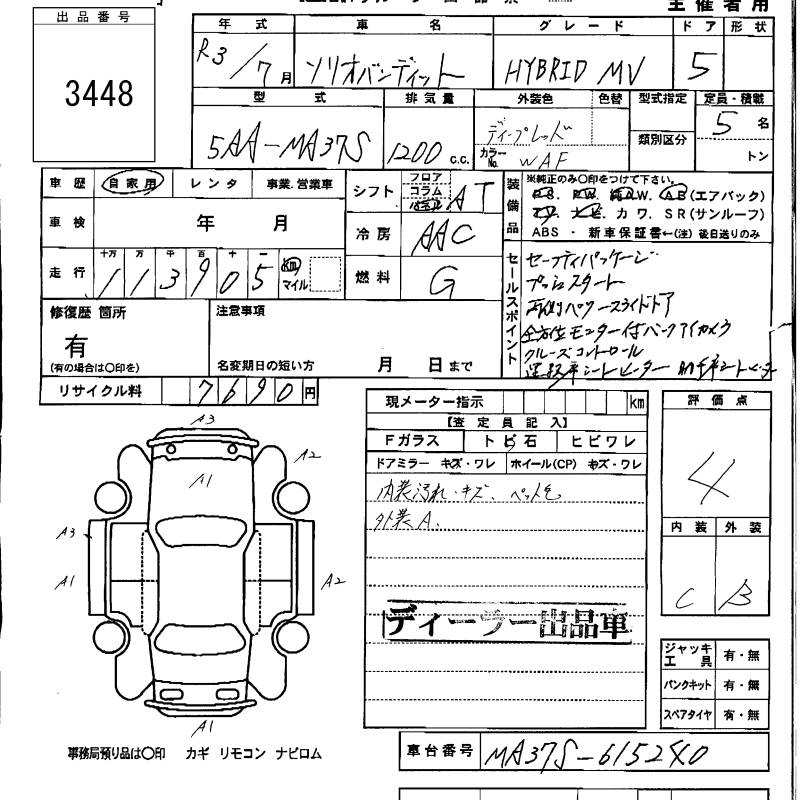 出品番号
3448
主催者用
年式 車名 グレード ドア 形状
R3/7月 ソリオバンディット HYBRID MV 5
型式 排気量 外装色 色替 型式指定 定員・積載
5AA-MA37S 1200 c.c. ディープレッド 5名
カラーNo. WAF 類別区分 トン
車歴 自家用 レンタ 事業.営業車
車検 年 月
走行 十万 万 千 百 十 一
113905 km マイル
シフト フロア コラム AT
冷房 AAC
燃料 G
装備品 ※純正のみ〇印をつけて下さい。
P.S. P.W. 純AW. AB(エアバック)
カワ. SR(サンルーフ)
ABS・新車保証書←(注)後日送りのみ
セールスポイント
セーフティパッケージ
プッシュスタート
両側パワースライドドア
全方位モニター付バックアイカメラ
クルーズコントロール
運転席シートヒーター 助手席シートヒーター
修復歴 箇所
有
(有の場合は〇印を)
注意事項
名変期日の短い方 月 日まで
リサイクル料 7690円
現メーター指示 km
【査定員記入】
Fガラス トビ石 ヒビワレ
ドアミラー キズ・ワレ ホイール(CP) キズ・ワレ
内装汚れ・キズ、ペット毛
外装A.
ディーラー出品車
評価点
4
内装 外装
C B
ジャッキ工具 有・無
パンクキット 有・無
スペアタイヤ 有・無
A3
A2
A1
A3
A1
A2
A1
事務局預り品は〇印 カギ リモコン ナビロム
車台番号 MA37S-615240